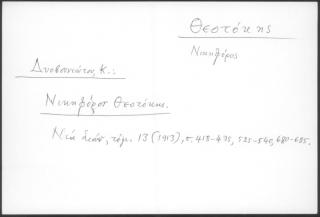 Θεοτόκης
Νικηφόρος
Δυοβουνιώτης Κ.:
Νικηφόρος Θεοτόκης.
Νέα Σιών, τόμ. 13 (1913), σ. 413-435, 525-540, 680-685.